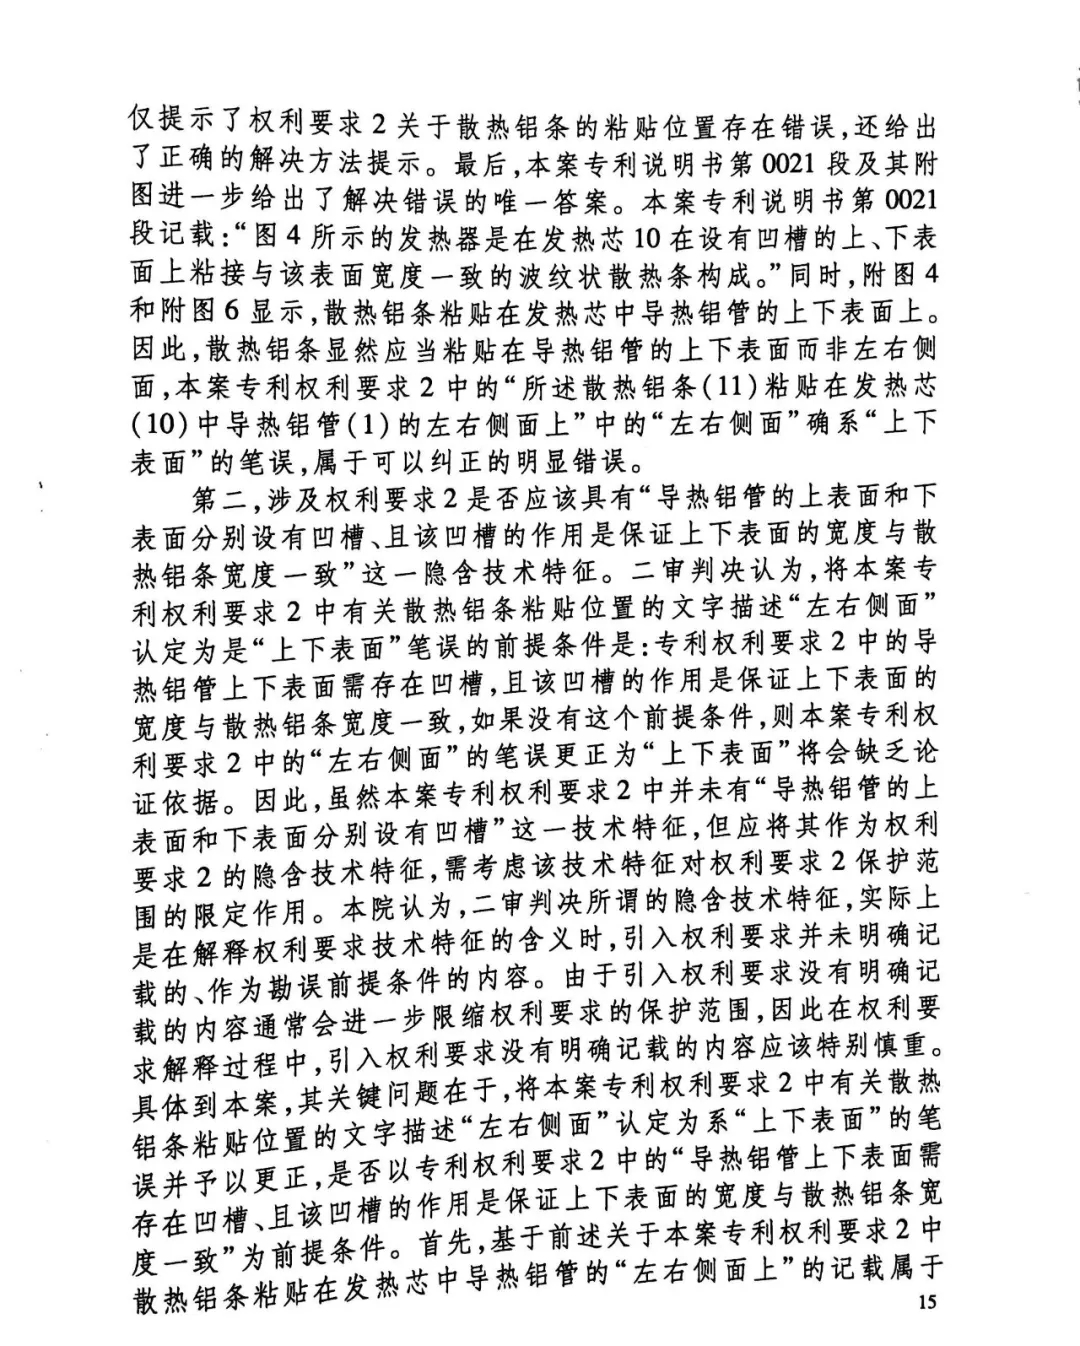 仅提示了权利要求2关于散热铝条的粘贴位置存在错误,还给出
了正确的解决方法提示。最后,本案专利说明书第0021段及其附
图进一步给出了解决错误的唯一答案。本案专利说明书第0021
段记载:“图4所示的发热器是在发热芯10在设有凹槽的上、下表
面上粘接与该表面宽度一致的波纹状散热条构成。”同时,附图4
和附图6显示,散热铝条粘贴在发热芯中导热铝管的上下表面上。
因此,散热铝条显然应当粘贴在导热铝管的上下表面而非左右侧
面,本案专利权利要求2中的“所述散热铝条(11)粘贴在发热芯
(10)中导热铝管(1)的左右侧面上”中的“左右侧面”确系“上下
表面”的笔误,属于可以纠正的明显错误。
第二,涉及权利要求2是否应该具有“导热铝管的上表面和下
表面分别设有凹槽、且该凹槽的作用是保证上下表面的宽度与散
热铝条宽度一致”这一隐含技术特征。二审判决认为,将本案专
利权利要求2中有关散热铝条粘贴位置的文字描述“左右侧面”
认定为是“上下表面”笔误的前提条件是:专利权利要求2中的导
热铝管上下表面需存在凹槽,且该凹槽的作用是保证上下表面的
宽度与散热铝条宽度一致,如果没有这个前提条件,则本案专利权
利要求2中的“左右侧面”的笔误更正为“上下表面”将会缺乏论
证依据。因此,虽然本案专利权利要求2中并未有“导热铝管的上
表面和下表面分别设有凹槽”这一技术特征,但应将其作为权利
要求2的隐含技术特征,需考虑该技术特征对权利要求2保护范
围的限定作用。本院认为,二审判决所谓的隐含技术特征,实际上
是在解释权利要求技术特征的含义时,引入权利要求并未明确记
载的、作为勘误前提条件的内容。由于引入权利要求没有明确记
载的内容通常会进一步限缩权利要求的保护范围,因此在权利要
求解释过程中,引入权利要求没有明确记载的内容应该特别慎重。
具体到本案,其关键问题在于,将本案专利权利要求2中有关散热
铝条粘贴位置的文字描述“左右侧面”认定为系“上下表面”的笔
误并予以更正,是否以专利权利要求2中的“导热铝管上下表面需
存在凹槽、且该凹槽的作用是保证上下表面的宽度与散热铝条宽
度一致”为前提条件。首先,基于前述关于本案专利权利要求2中
散热铝条粘贴在发热芯中导热铝管的“左右侧面上”的记载属于
15